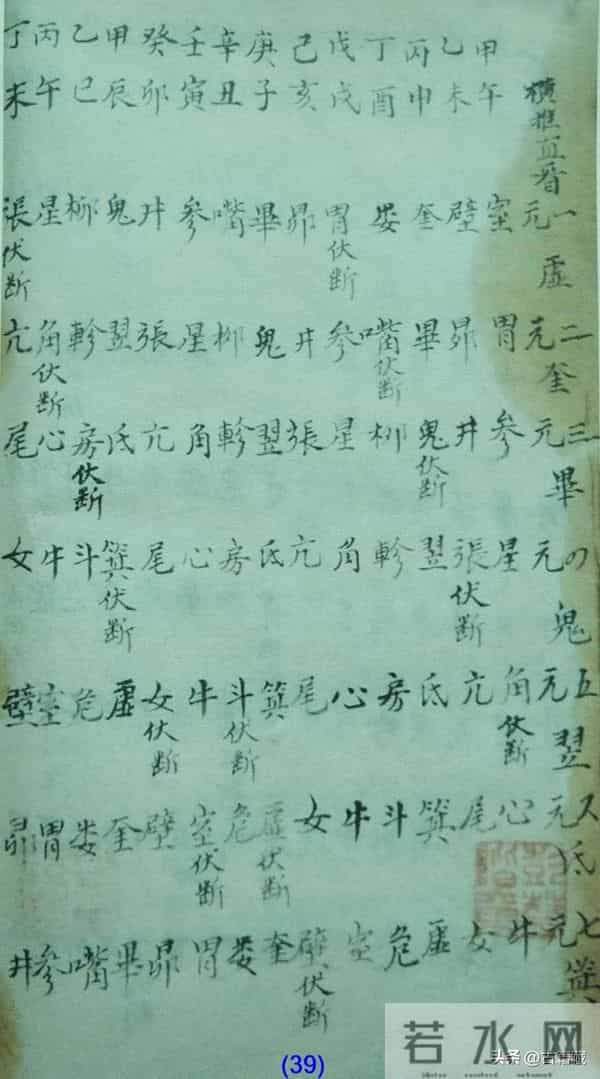 横推直看
一元虛
二元奎
三元畢
四元鬼
五元翌
六元氐
七元箕
甲午 室 胃 參 星 角伏断 心 牛
乙未 壁 昴 井 張伏断 亢 尾 女
丙申 奎 畢 鬼伏断 翌 氐 箕 虛
丁酉 婁 嘴伏断 柳 軫 房 斗 危
戊戌 胃伏断 參 星 角 心 牛 室
己亥 昴 井 張 亢 尾 女 壁伏断
庚子 畢 鬼 翌 氐 箕 虛伏断 奎
辛丑 嘴 柳 軫 房 斗伏断 危 婁
壬寅 參 星 角 心 牛 室伏断 胃
癸卯 井 張 亢 尾 女伏断 壁 昴
甲辰 鬼 翌 氐 箕伏断 虛 奎 畢
乙巳 柳 軫 房伏断 斗 危 婁 嘴
丙午 星 角伏断 心 牛 室 胃 參
丁未 張伏断 亢 尾 女 壁 昴 井
若水网
(39)